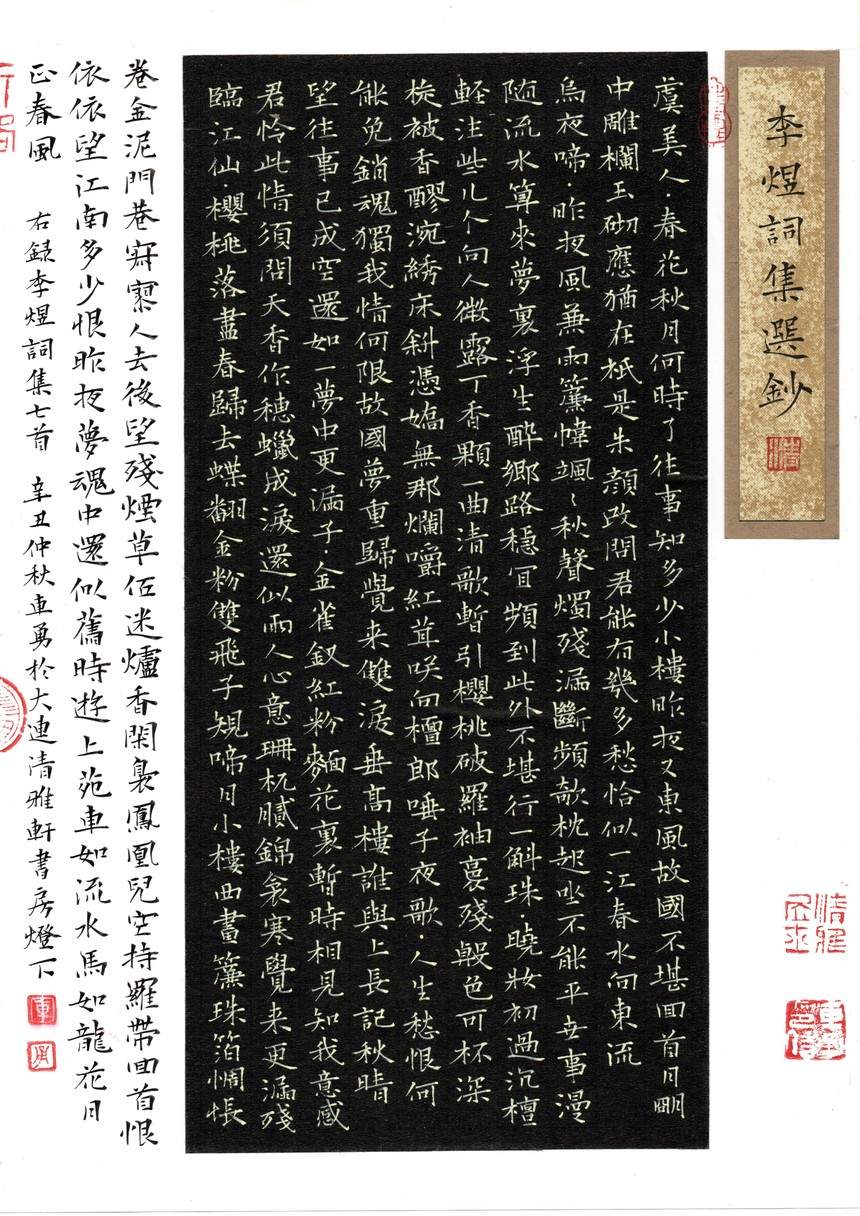 李煜詞集選鈔
虞美人·春花秋月何時了往事知多少小樓昨夜又東風故國不堪回首月明
中雕欄玉砌應猶在衹是朱顔改問君能有幾多愁恰似一江春水向東流
烏夜啼·昨夜風兼雨簾幃颯〻秋聲燭殘漏斷頻欹枕起坐不能平世事漫
随流水算來夢裏浮生醉鄉路穩宜頻到此外不堪行一斛珠·曉妝初過沉檀
輕注些儿个向人微露丁香顆一曲清歌暫引櫻桃破羅袖裛殘殷色可杯深
旋被香醪涴綉床斜憑嬌無那爛嚼紅茸咲向檀郎唾子夜歌·人生愁恨何
能免銷魂獨我情何限故國夢重歸覺来雙淚垂高樓誰與上長記秋晴
望往事已成空還如一夢中更漏子·金雀釵紅粉麵花裏暫時相見知我意感
君怜此情須問天香作穗蠟成淚還似兩人心意珊枕膩錦衾寒覺来更漏殘
臨江仙·櫻桃落盡春歸去蝶翻金粉雙飛子規啼月小樓西畫簾珠箔惆悵
卷金泥門巷寂寥人去後望殘煙草低迷爐香閑裊鳳凰兒空持羅帶回首恨
依依望江南多少恨昨夜夢魂中還似舊時游上苑車如流水馬如龍花月
正春風 右録李煜詞集七首 辛丑仲秋車勇於大連清雅軒書房燈下